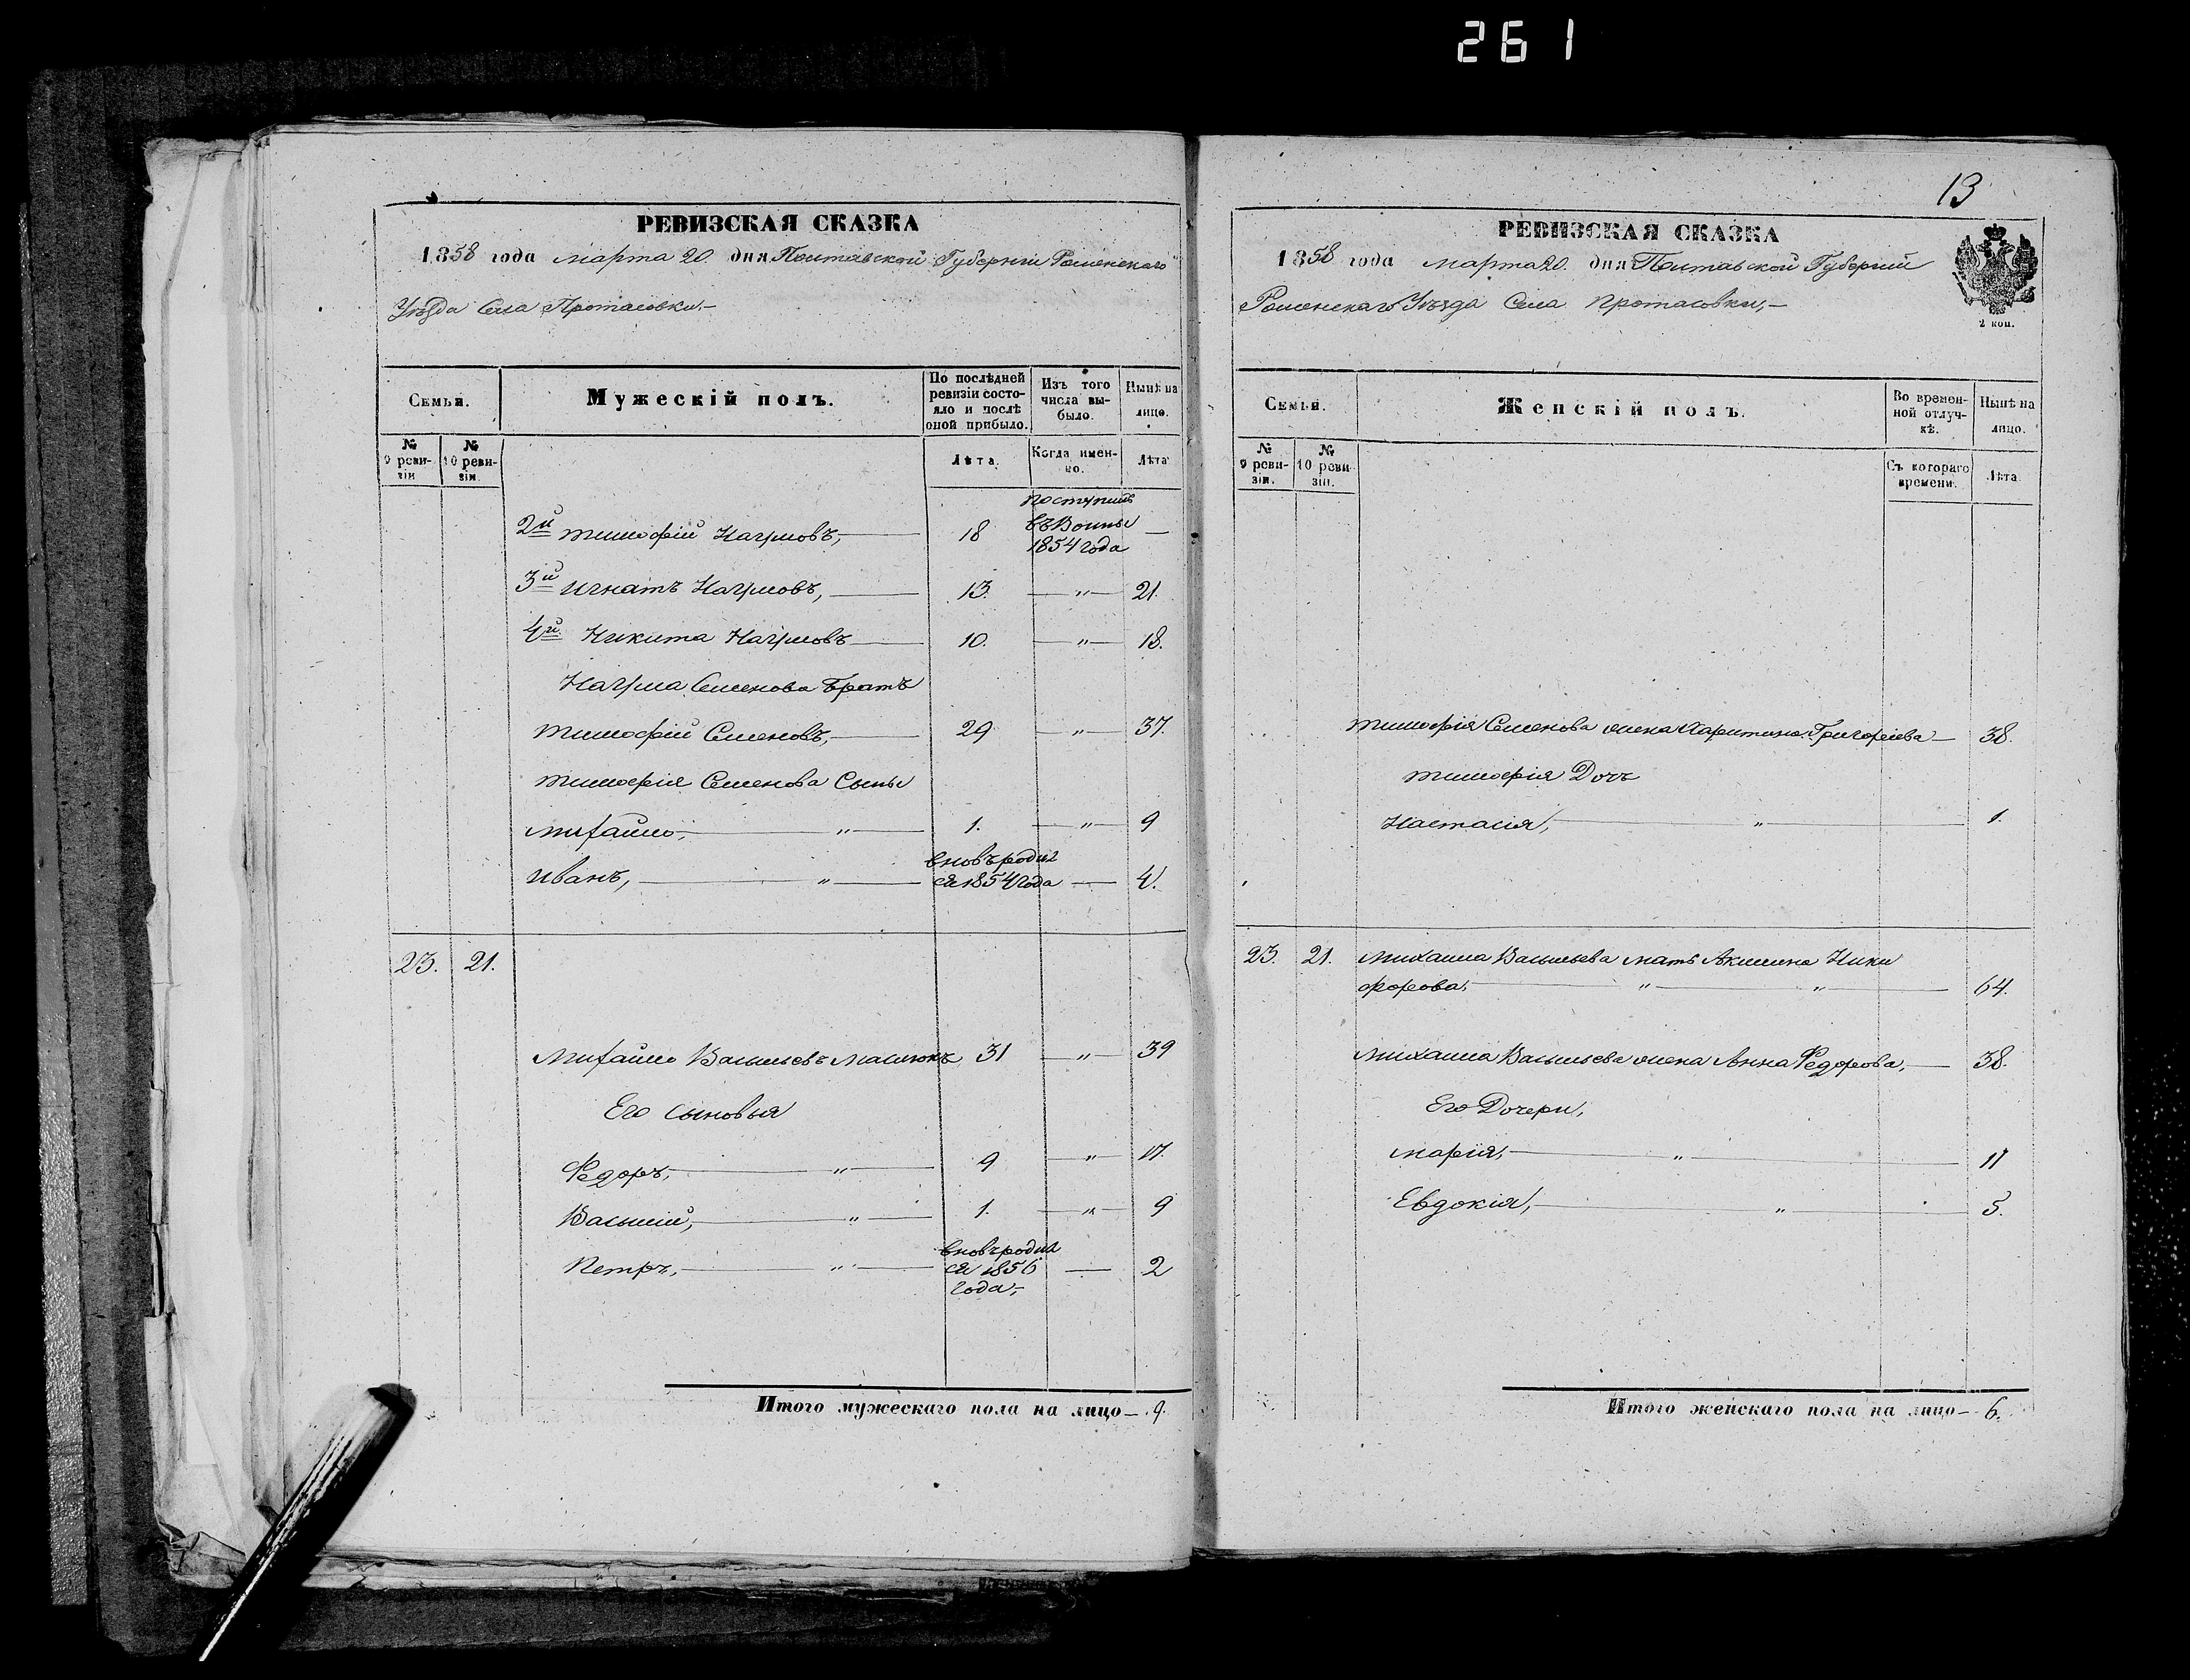 261
РЕВИЗСКАЯ СКАЗКА
1858 года марта 20. дня Полтавской Губерніи Роменскаго
Уѣзда Села Протасовки,—
Семья.
Мужескій полъ.
По послѣдней ревизіи состояло и послѣ оной прибыло.
Изъ того числа выбыло.
Нынѣ на лицо.
№ 9 ревизіи
№ 10 ревизіи.
Лѣта
Когда именно.
Лѣта
2й Тимофій Наумовъ,— 18 поступилъ въ Воины 1854 года —
3й Игнатъ Наумовъ,— 13. — " — 21.
4й Никита Наумовъ — 10. — " — 18.
Наума Семенова Братъ
Тимофій Семеновъ,— 29 — " — 37.
Тимофія Семенова Сыны
Михайло,— " — 1. — " — 9
Иванъ,— " — вновь родился 1854 года — 4.
23. 21.
Михайло Васильевъ 31 — " — 39
Его сыновья
Федоръ,— " — 9 — " — 17.
Васылій,— " — 1. — " — 9
Петръ,— " — вновь родился 1856 года,— — 2
Итого мужескаго пола на лицо — 9.
13
РЕВИЗСКАЯ СКАЗКА
1858 года марта 20. дня Полтавской Губерніи
Роменскаго Уѣзда Села Протасовки,—
2 коп.
Семья.
Женскій полъ.
Во временной отлучкѣ.
Нынѣ на лицо.
№ 9 ревизіи.
№ 10 ревизіи.
Съ котораго времени.
Лѣта
Тимофія Семенова жена Харитина Григорiева — 38.
Тимофія Дочь
Настасія,— " — 1.
23. 21. Михаила Васильева мать Акилина Ники
форова,— " — " — 64.
Михаила Васильева жена Анна Федорова,— 38.
Его Дочери,
Марія,— " — 11
Евдокія,— " — 5.
Итого женскаго пола на лицо — 6.